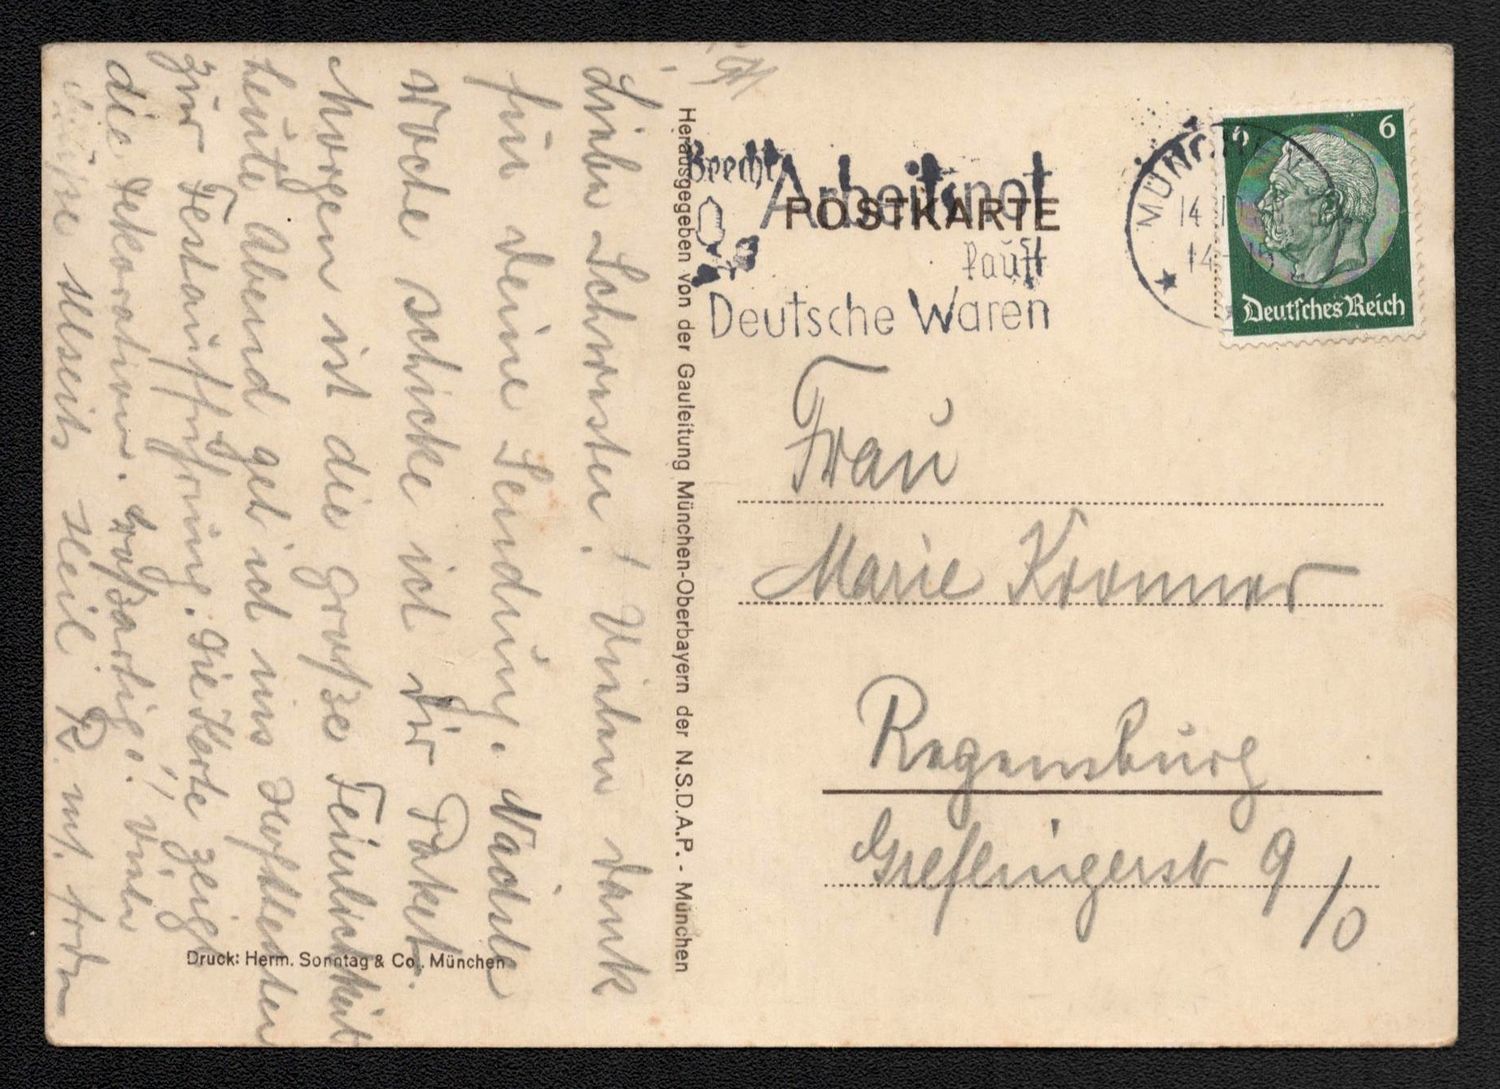 Liebe Schwester! Vielen Dank
für Deine Sendung. Nächste
Woche schicke ich Dir Paket.
Morgen ist die große Feierlichkeit
heute Abend geh ich ins
zur Festaufführung. Die Karte zeigt
die Dekoration. Großartig! Viele
Grüße allseits Heil
Herausgegeben von der Gauleitung München-Oberbayern der N.S.D.A.P. - München
Druck: Herm. Sonntag & Co., München
POSTKARTE
Brecht
Arbeitsnot
kauft
Deutsche Waren
MÜNCHEN
14
14
6
Deutsches Reich
Frau
Marie Kronner
Regensburg
Greflingerstr 9/0